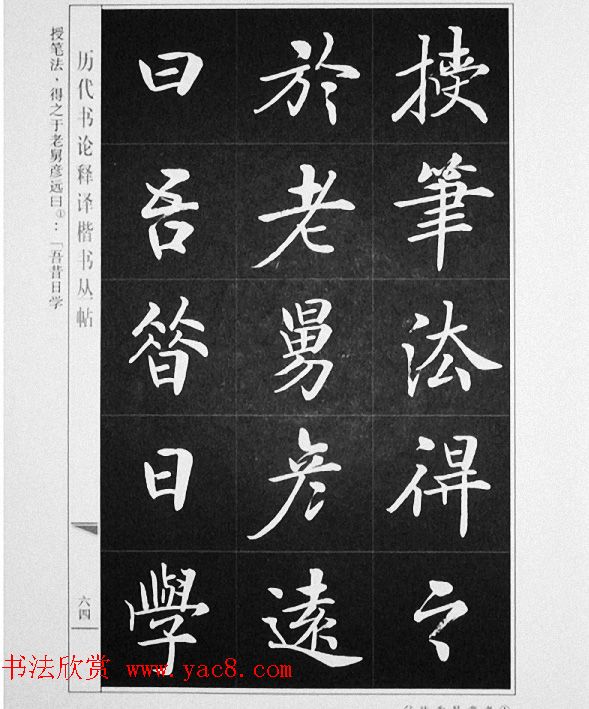 授筆法得之
於老舅彦遠
曰吾昔日學
历代书论释译楷书丛帖
六四
授笔法，得之于老舅彦远曰①：「吾昔日学
书法欣赏 www.yac8.com